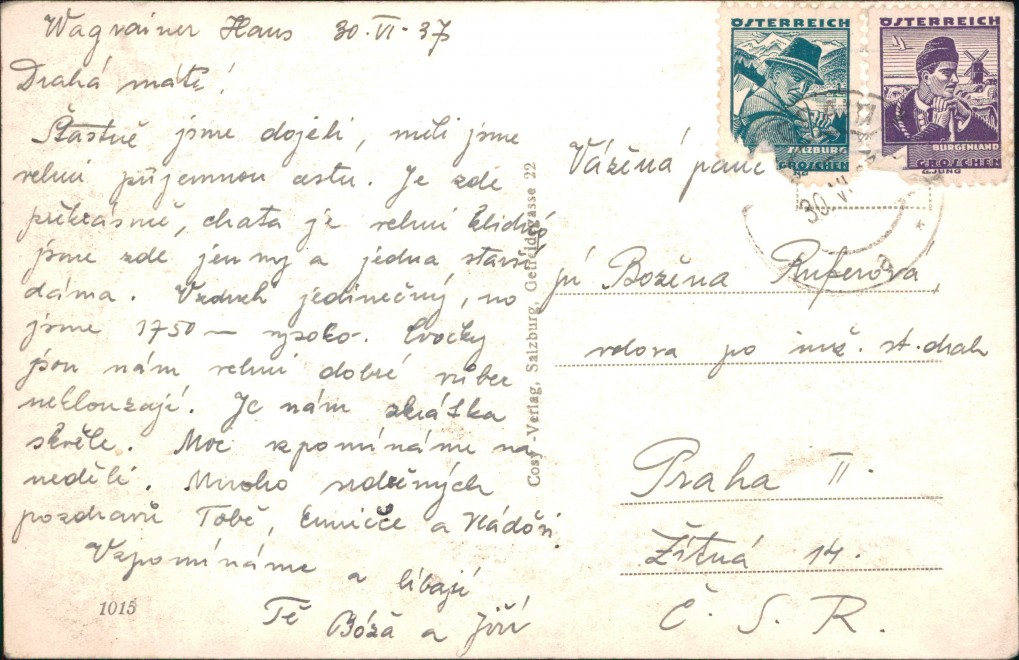 Wagrainer Haus 30-VI-37
Drahá máti!
Šťastně jsme dojeli, měli jsme
velmi příjemnou cestu. Je zde
překrásně, chata je velmi klidná
jsme zde jen my a jedna starší
dáma. Vzduch jedinečný, no
jsme 1750 – vysoko. Cvočky
jsou nám velmi dobré vůbec
neklouzají. Je nám zkrátka
skvěle. Moc vzpomínáme na
neděli. Mnoho srdečných
pozdravů Tobě, Emničce a Vláďovi.
Vzpomínáme a líbají
Tě Bóža a Jiří
1015
Cosy-Verlag, Salzburg, Getreidegasse 22
ÖSTERREICH
SALZBURG
GROSCHEN
ÖSTERREICH
BURGENLAND
GROSCHEN
G.JUNG
30.VI
Vážená paní
pí Božena Ruferová,
vdova po inž. st. drah
Praha II.
Žitná 14.
Č. S. R.